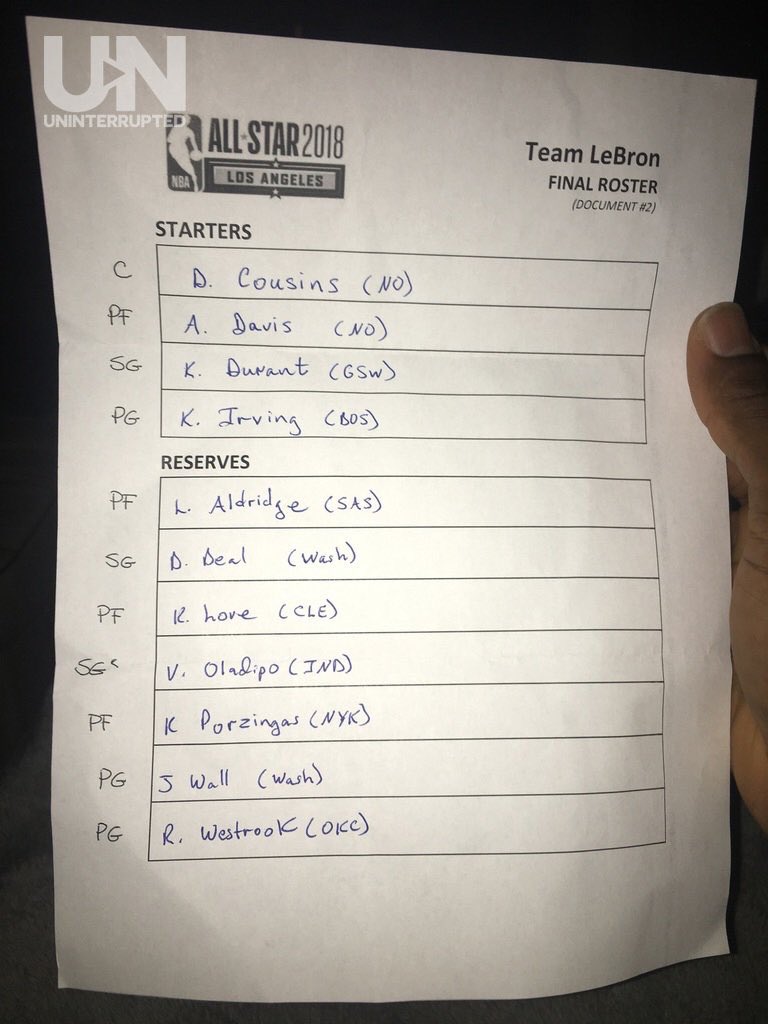 UN
UNINTERRUPTED
NBA
ALL★STAR 2018
LOS ANGELES
Team LeBron
FINAL ROSTER
(DOCUMENT #2)
STARTERS
C D. Cousins (NO)
PF A. Davis (NO)
SG K. Durant (GSW)
PG K. Irving (BOS)
RESERVES
PF L. Aldridge (SAS)
SG B. Beal (Wash)
PF K. Love (CLE)
SG V. Oladipo (IND)
PF K Porzingas (NYK)
PG J Wall (Wash)
PG R. Westrook (OKC)